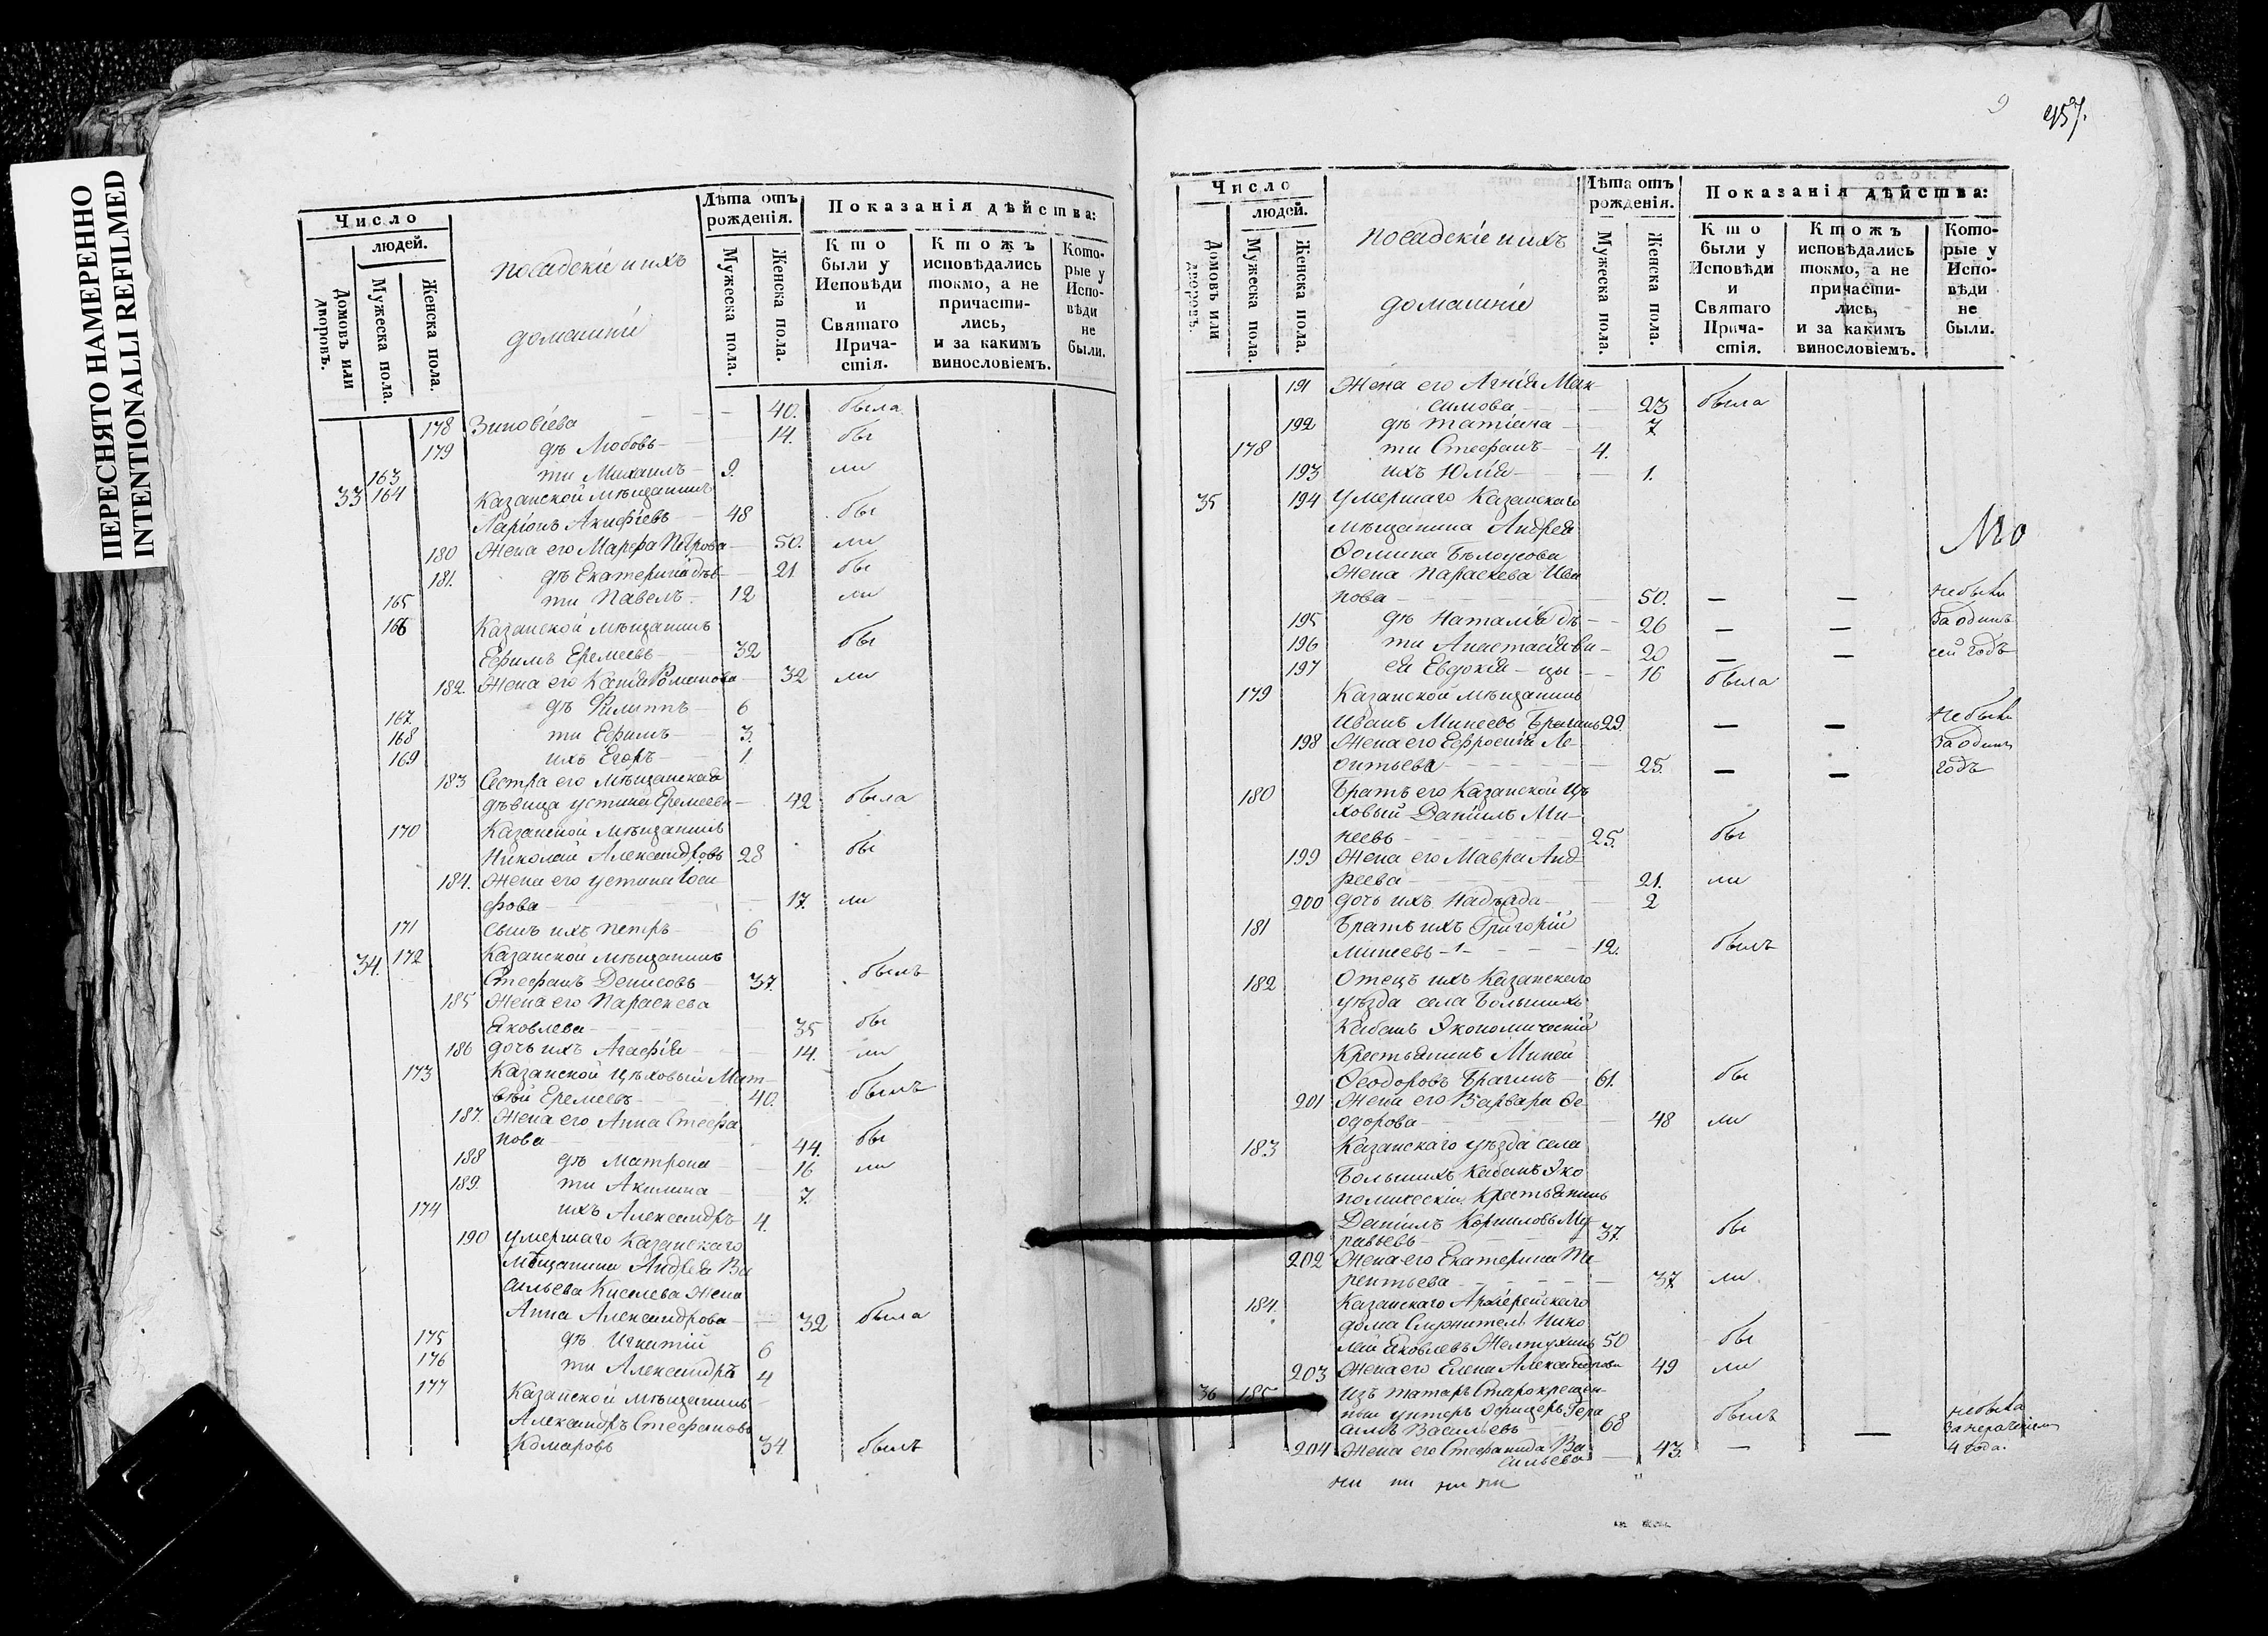 ПЕРЕСНЯТО НАМЕРЕННО
INTENTIONALLI REFILMED
Число
людей.
Домовъ или дворовъ.
Мужеска пола.
Женска пола.
посадскіе и ихъ
домашніе
Лѣта отъ рожденія.
Мужеска пола.
Женска пола.
Показанія дѣйства:
Кто были у Исповѣди и Святаго Причастія.
Ктожъ исповѣдались токмо, а не причастились, и за какимъ винословіемъ.
Которые у Исповѣди не были.
178 Зиновіева 40. была
179 дѣ Любовь 14. бы
163 ти Михаилъ 9. ли
33 164 Казанской мѣщанинъ
Ларіонъ Акифіевъ 48 бы
180 Жена его Марѳа Петрова 50. ли
181. дѣ Екатерина дѣв 21 бы
165 ти Павелъ 12 ли
166 Казанской мѣщанинъ
Ефимъ Еремеевъ 32 бы
182. Жена его Романова 32 ли
167. дѣ Филиппъ 6
168 ти Ефимъ 3.
169 ихъ Егоръ 1
183 Сестра его мѣщанская
дѣвица Устина Еремеева 42 была
170 Казанской мѣщанинъ
Николай Александровъ 28 бы
184. Жена его Устина Іоси
фова 17. ли
171 Сынъ ихъ Петръ 6
34. 172 Казанской мѣщанинъ
Стефанъ Денисовъ 37. былъ
185 Жена его Параскева
Яковлева 35 бы
186 дочь ихъ Агафія 14. ли
173 Казанской цѣховый Мат-
вѣй Еремеевъ 40. былъ
187. Жена его Анна Стефа
нова 44. бы
188 дѣ Матрона 16 ли
189. ти Акилина 7.
174 ихъ Александръ 4.
190 умершаго Казанскаго
мѣщанина Андрея Ва
сильева Киселева жена
Анна Александрова 32 была
175 дѣ Игнатій 6
176 ти Александръ 4
177 Казанской мѣщанинъ
Александръ Стефановъ
Комаровъ 34 былъ
457.
Число
людей.
Домовъ или дворовъ.
Мужеска пола.
Женска пола.
посадскіе и ихъ
домашніе
Лѣта отъ рожденія.
Мужеска пола.
Женска пола.
Показанія дѣйства:
Кто были у Исповѣди и Святаго Причастія.
Ктожъ исповѣдались токмо, а не причастились, и за какимъ винословіемъ.
Которые у Исповѣди не были.
191 Жена его Агнія Мак-
симова 23 была
192 дѣ Татіана 7
178 ти Стефанъ 4.
193 ихъ Юлія 1.
35 194 умершаго Казанскаго
мѣщанина Андрея
Ѳомина Бѣлоусова
Жена Параскева Ива
нова 50. — — не были
195 дѣ Наталія дѣ 26 — — за одинъ
196 ти Анастасія ви 20 — — сей годъ
197 ея Евдокія цы 16 была
179 Казанской мѣщанинъ
Иванъ Минеевъ Брагинъ 29. — — не были
198 Жена его Ефросинія Ле- за одинъ
онтьева 25. — — годъ
180 Братъ его Казанской цѣ
ховый Даніилъ Ми-
неевъ 25. бы
199 Жена его Мавра Анд-
реева 21. ли
200 дочь ихъ Надежда 2
181 Братъ ихъ Григорій
Минеевъ 12. былъ
182 Отецъ ихъ Казанскаго
уѣзда села Большихъ
Кабанъ Экономическій
Крестьянинъ Миней
Ѳеодоровъ Брагинъ 61. бы
201 Жена его Варвара Ѳе-
одорова 48 ли
183 Казанскаго уѣзда села
Большихъ Кабанъ Эко
номическій Крестьянинъ
Даніилъ Корниловъ Му-
равьевъ 37. бы
202 Жена его Екатерина Те-
рентьева 37. ли
184. Казанскаго Архіерейскаго
дома Служитель Нико
лай Яковлевъ Желтухинъ 50 бы
203 Жена его Елена Александрова 49 ли
36 185 Изъ татаръ Старокрещен-
ной унтеръ офицеръ Гера
симъ Васильевъ 68 былъ
204 Жена его Стефанида Ва 43. — — не была за нераченіемъ 4 года.
сильева